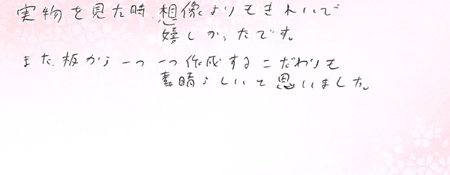 実物を見た時 想像よりもきれいで
嬉しかったです。
また、板から一つ一つ作成するこだわりも
素晴らしいと思いました。